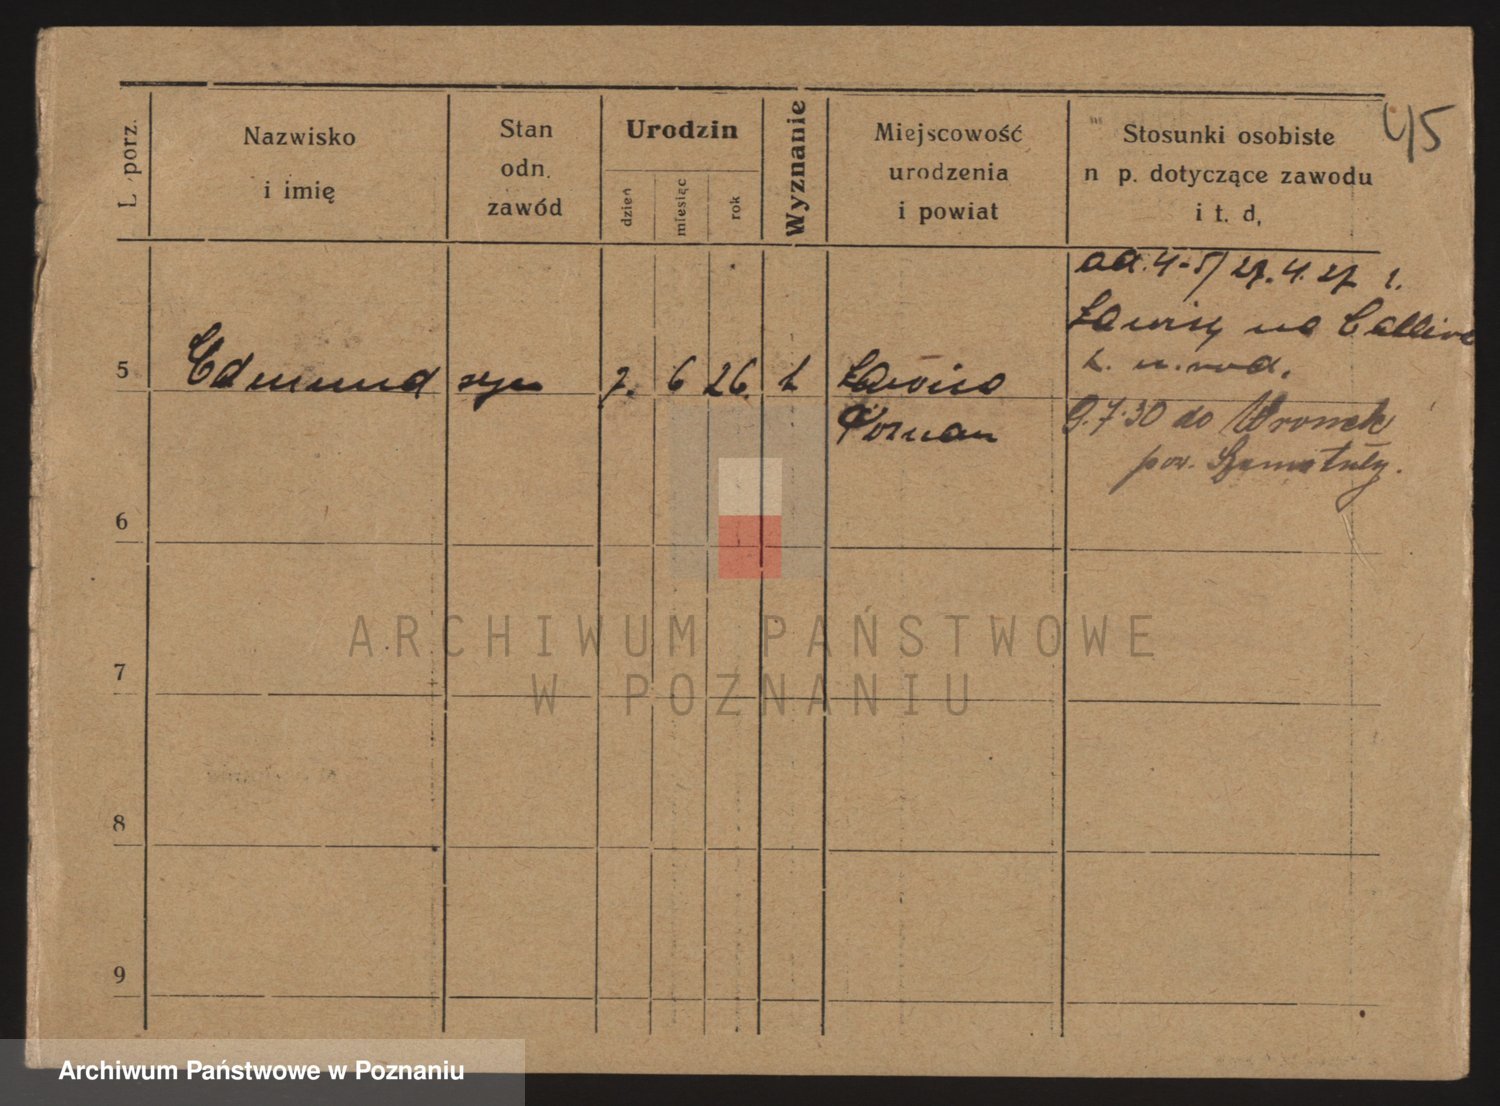 45
L. porz.
Nazwisko
i imię
Stan
odn.
zawód
Urodzin
dzień
miesiąc
rok
Wyznanie
Miejscowość
urodzenia
i powiat
Stosunki osobiste
n p. dotyczące zawodu
i t. d,
ad. 4-5/ 27. 4. 27 r.
na
5
Edmund syn 7. 6 26.
Poznań
9.7.30 do Wronek
pow. Szamotuły.
6
7
8
9
ARCHIWUM PAŃSTWOWE
W POZNANIU
Archiwum Państwowe w Poznaniu